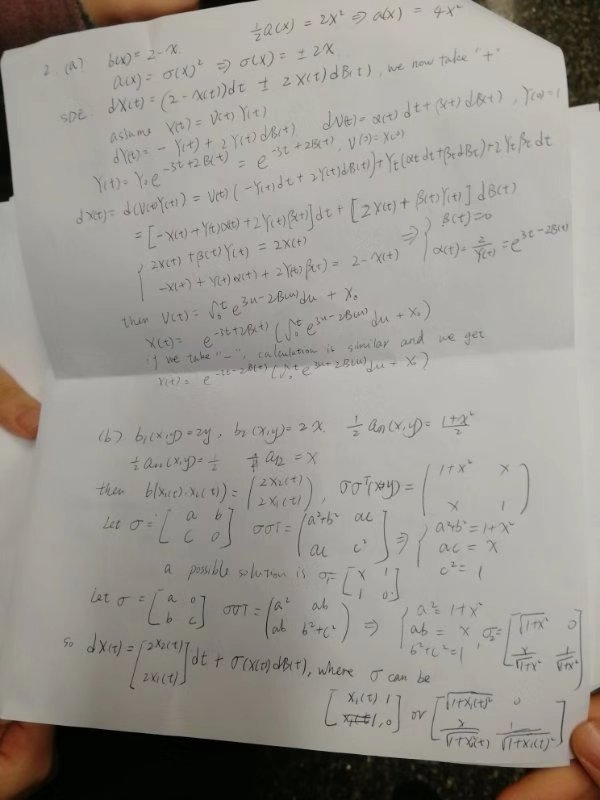 ½a(x) = 2x² ⇒ a(x) = 4x²
2. (a) b(x) = 2-x.
a(x) = σ(x)² ⇒ σ(x) = ± 2x
SDE. dX(t) = (2-X(t))dt ± 2X(t)dB(t), we now take "+"
assume X(t) = V(t)Y(t)
dY(t) = -Y(t) + 2Y(t)dB(t) dV(t) = α(t)dt + β(t)dB(t), Y(0)=1
Y(t) = Y₀e^{-3t+2B(t)} = e^{-3t+2B(t)}, V(0)=X(0)
dX(t) = d(V(t)Y(t)) = V(t)(-Y(t)dt + 2Y(t)dB(t)) + Y_t(α_t dt + β_t dB_t) + 2Y_tβ_t dt
= [-X(t) + Y(t)α(t) + 2Y(t)β(t)]dt + [2X(t) + β(t)Y(t)]dB(t)
{ 2X(t) + β(t)Y(t) = 2X(t)
-X(t) + Y(t)α(t) + 2Y(t)β(t) = 2-X(t) ⇒ { β(t)=0
α(t) = 2/Y(t) = e^{3t-2B(t)}
then V(t) = ∫₀ᵗ e^{3u-2B(u)}du + X₀
X(t) = e^{-3t+2B(t)}(∫₀ᵗ e^{3u-2B(u)}du + X₀)
if we take "-", calculation is similar and we get
X(t) = e^{-3t-2B(t)}(∫₀ᵗ e^{3u+2B(u)}du + X₀)
(b) b₁(x,y)=2y, b₂(x,y)=2x. ½a₁₁(x,y) = (1+x²)/2
½a₂₂(x,y) = ½ a₁₂ = x
then b(X₁(t),X₂(t)) = (2X₂(t) ; 2X₁(t)), σσᵀ(x,y) = (1+x² x ; x 1)
Let σ = [a b ; c 0] σσᵀ = (a²+b² ac ; ac c²) ⇒ { a²+b²=1+x²
ac = x
c² = 1
a possible solution is σ₁ = [x 1 ; 1 0]
Let σ = [a 0 ; b c] σσᵀ = (a² ab ; ab b²+c²) ⇒ { a² = 1+x²
ab = x
b²+c²=1, σ₂ = [√(1+x²) 0 ; x/√(1+x²) 1/√(1+x²)]
so dX(t) = [2X₂(t) ; 2X₁(t)]dt + σ(X(t))dB(t), where σ can be
[X₁(t) 1 ; 1, 0] or [√(1+X₁(t)²) 0 ; x/√(1+X₁²(t)) 1/√(1+X₁(t)²)]